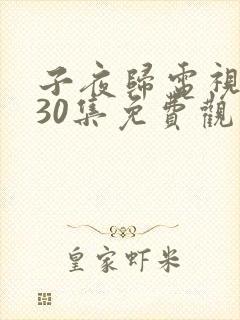 子夜歸電視
30集免費觀
皇家虾米